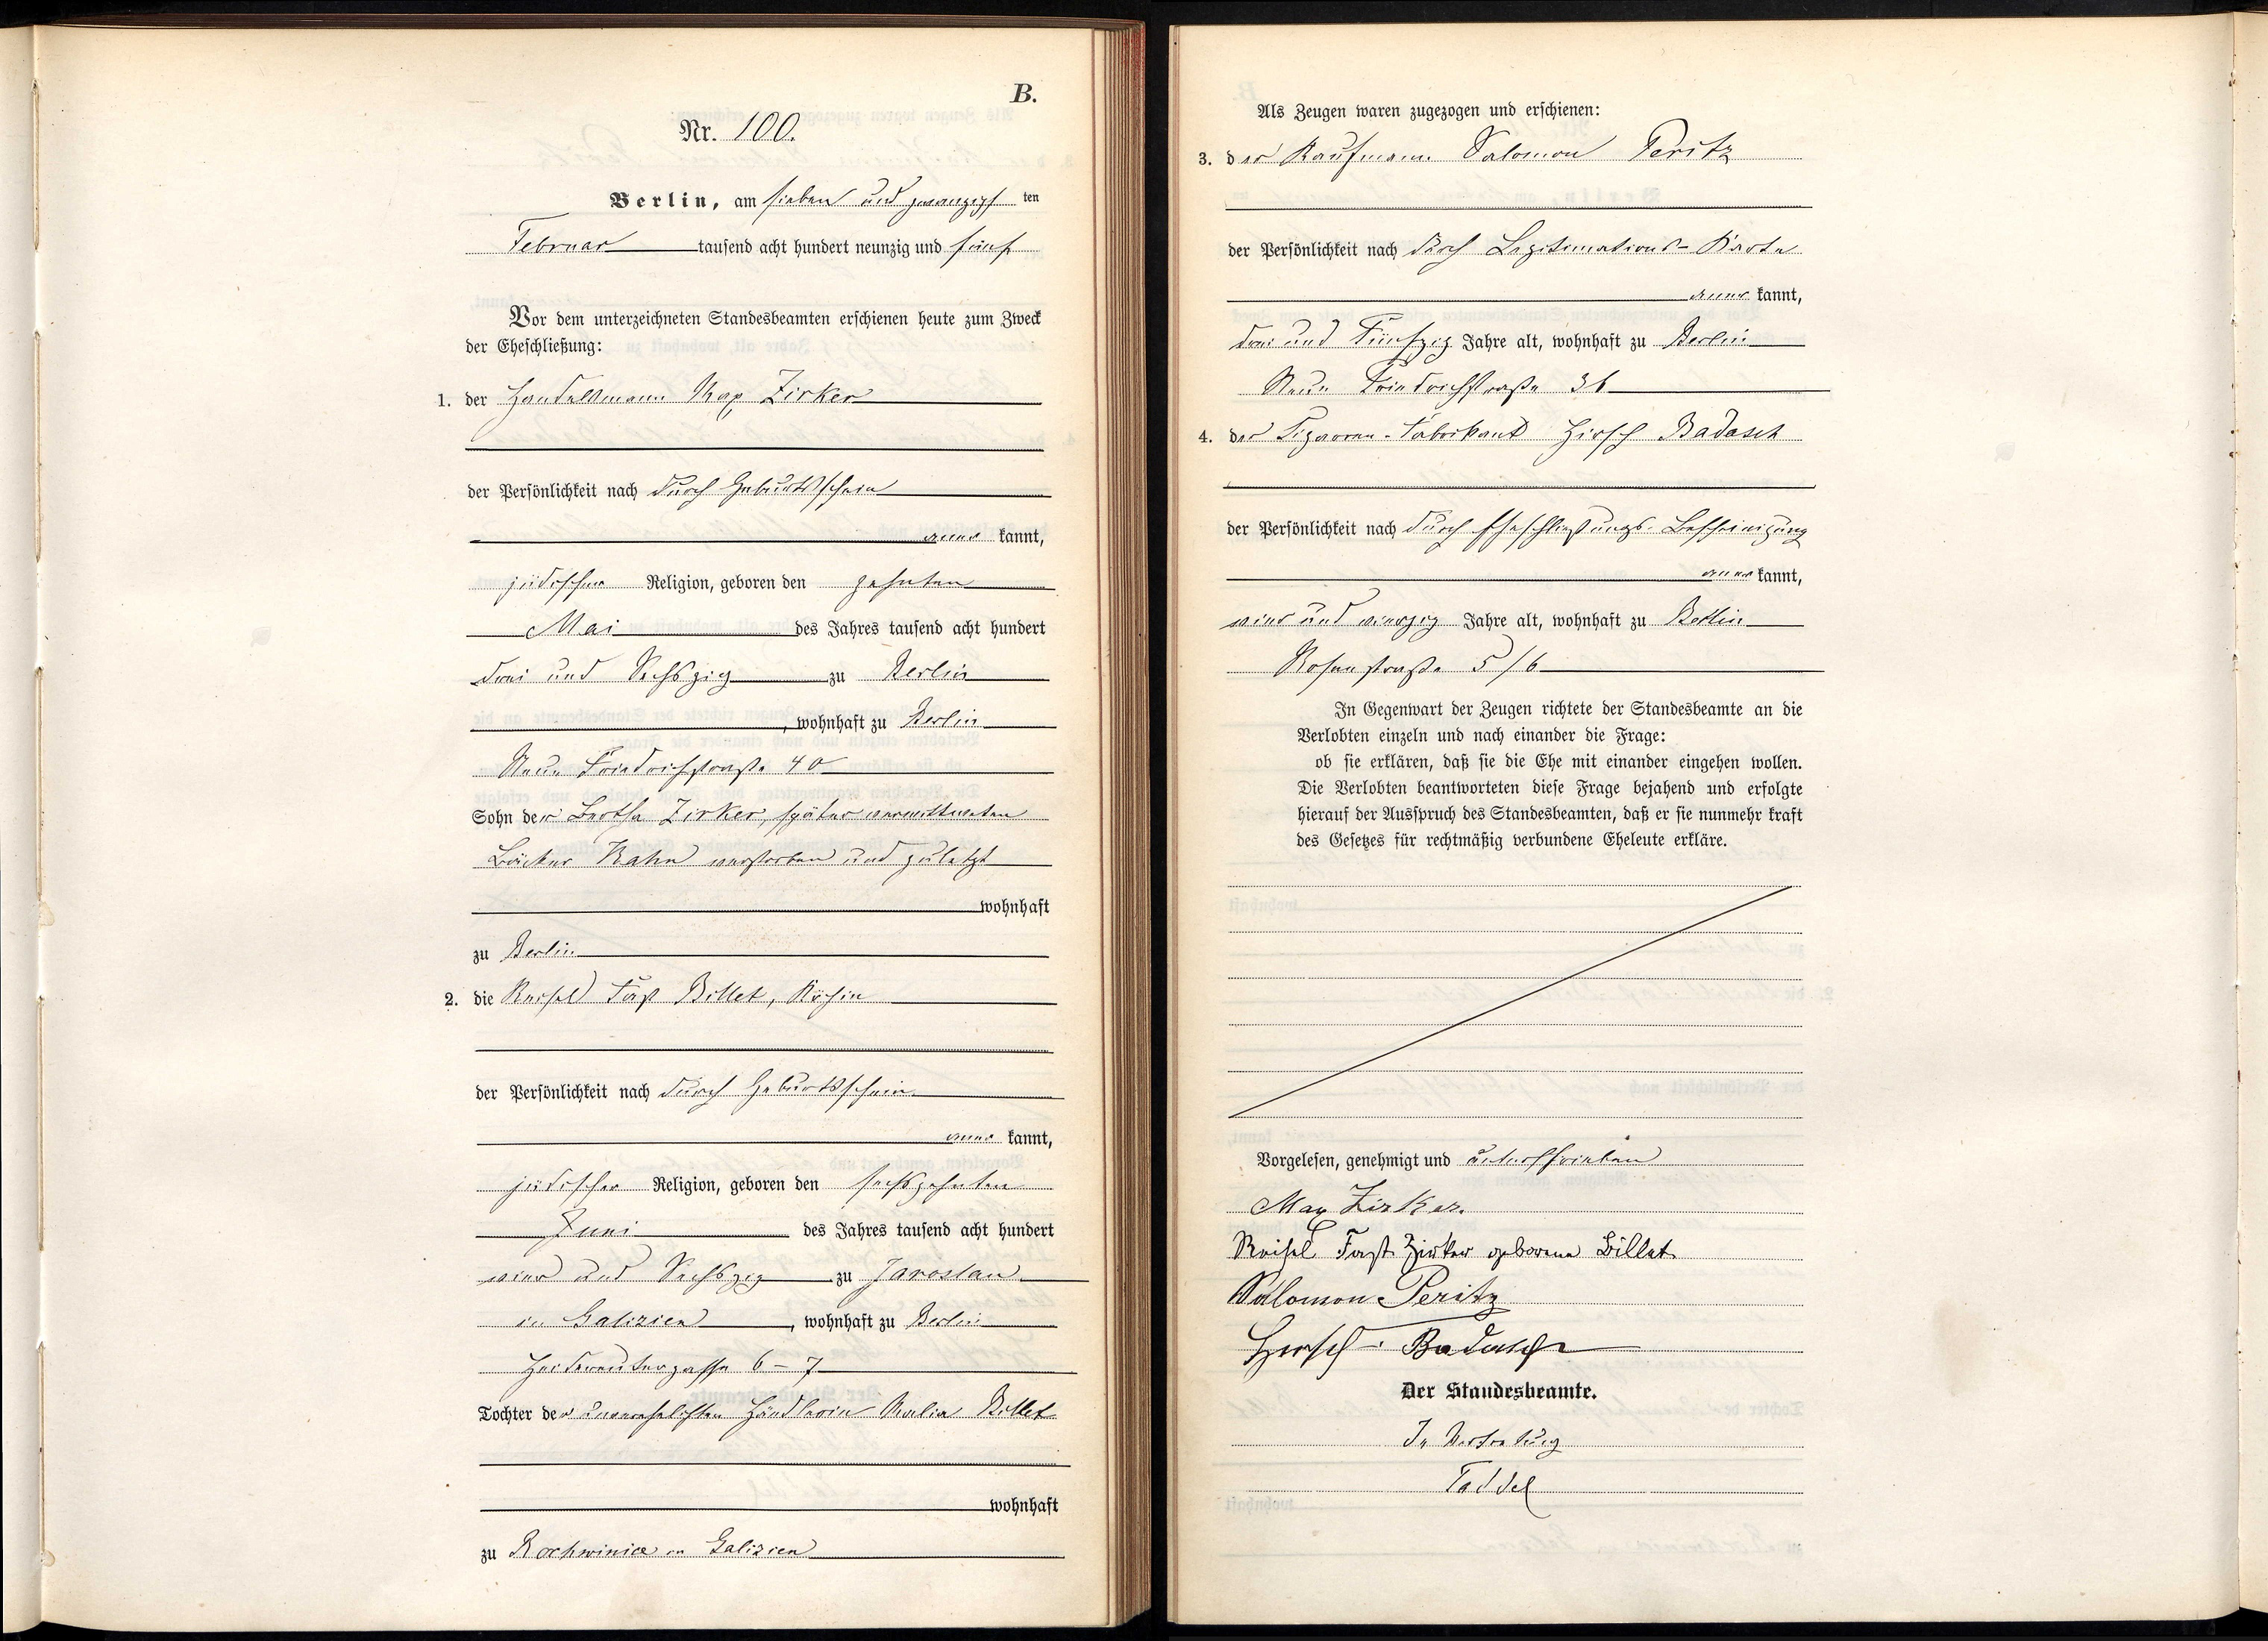 B.
Nr. 100.
Berlin, am sieben und zwanzigsten
Februar tausend acht hundert neunzig und fünf
Vor dem unterzeichneten Standesbeamten erschienen heute zum Zweck
der Eheschließung:
1. der Handelsmann Max Zirker
der Persönlichkeit nach durch Geburtsschein
anerkannt,
jüdischer Religion, geboren den zehnten
Mai des Jahres tausend acht hundert
drei und Sechszig zu Berlin
, wohnhaft zu Berlin
Neue Friedrichstraße 40
Sohn der Bertha Zirker, später verwittweten
Bäcker Kahn verstorben und zuletzt
wohnhaft
zu Berlin
2. die Reisel Billet, Köchin
der Persönlichkeit nach durch Geburtsschein
anerkannt,
jüdischer Religion, geboren den sechszehnten
Juni des Jahres tausend acht hundert
vier und Sechszig zu Jaroslau
in Galizien, wohnhaft zu Berlin
Heidereutergasse 6-7
Tochter der unverehelichten Händlerin Malie Billet
wohnhaft
zu in Galizien
Als Zeugen waren zugezogen und erschienen:
3. der Kaufmann Salomon Peritz
der Persönlichkeit nach durch Legitimations-Karte
anerkannt,
drei und Fünfzig Jahre alt, wohnhaft zu Berlin
Neue Friedrichstraße 36
4. der Cigarren-Fabrikant Hirsch Badasch
der Persönlichkeit nach durch Eheschließungs-Bescheinigung
anerkannt,
vier und vierzig Jahre alt, wohnhaft zu Berlin
Rosenstraße 5/6
In Gegenwart der Zeugen richtete der Standesbeamte an die
Verlobten einzeln und nach einander die Frage:
ob sie erklären, daß sie die Ehe mit einander eingehen wollen.
Die Verlobten beantworteten diese Frage bejahend und erfolgte
hierauf der Ausspruch des Standesbeamten, daß er sie nunmehr kraft
des Gesetzes für rechtmäßig verbundene Eheleute erkläre.
Vorgelesen, genehmigt und unterschrieben
Max Zirker.
Reisel Zirker geborene Billet
Salomon Peritz
Hirsch Badasch
Der Standesbeamte.
In Vertretung
Taddel